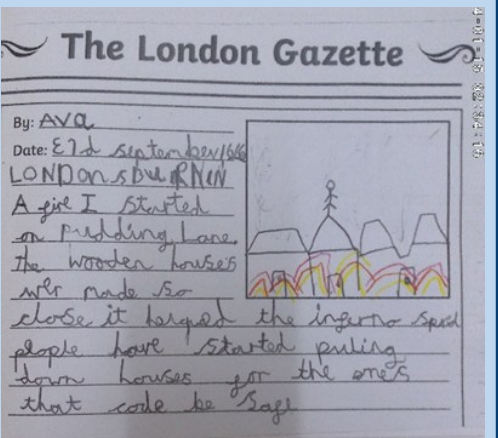 The London Gazette
By: Ava
Date: September 1666
LONDON s BURNIN
A fire I started
on pudding Lane.
the wooden houses
wer made so
close it helped the inferno spred
people have started puling
down houses for the one's
that code be safe